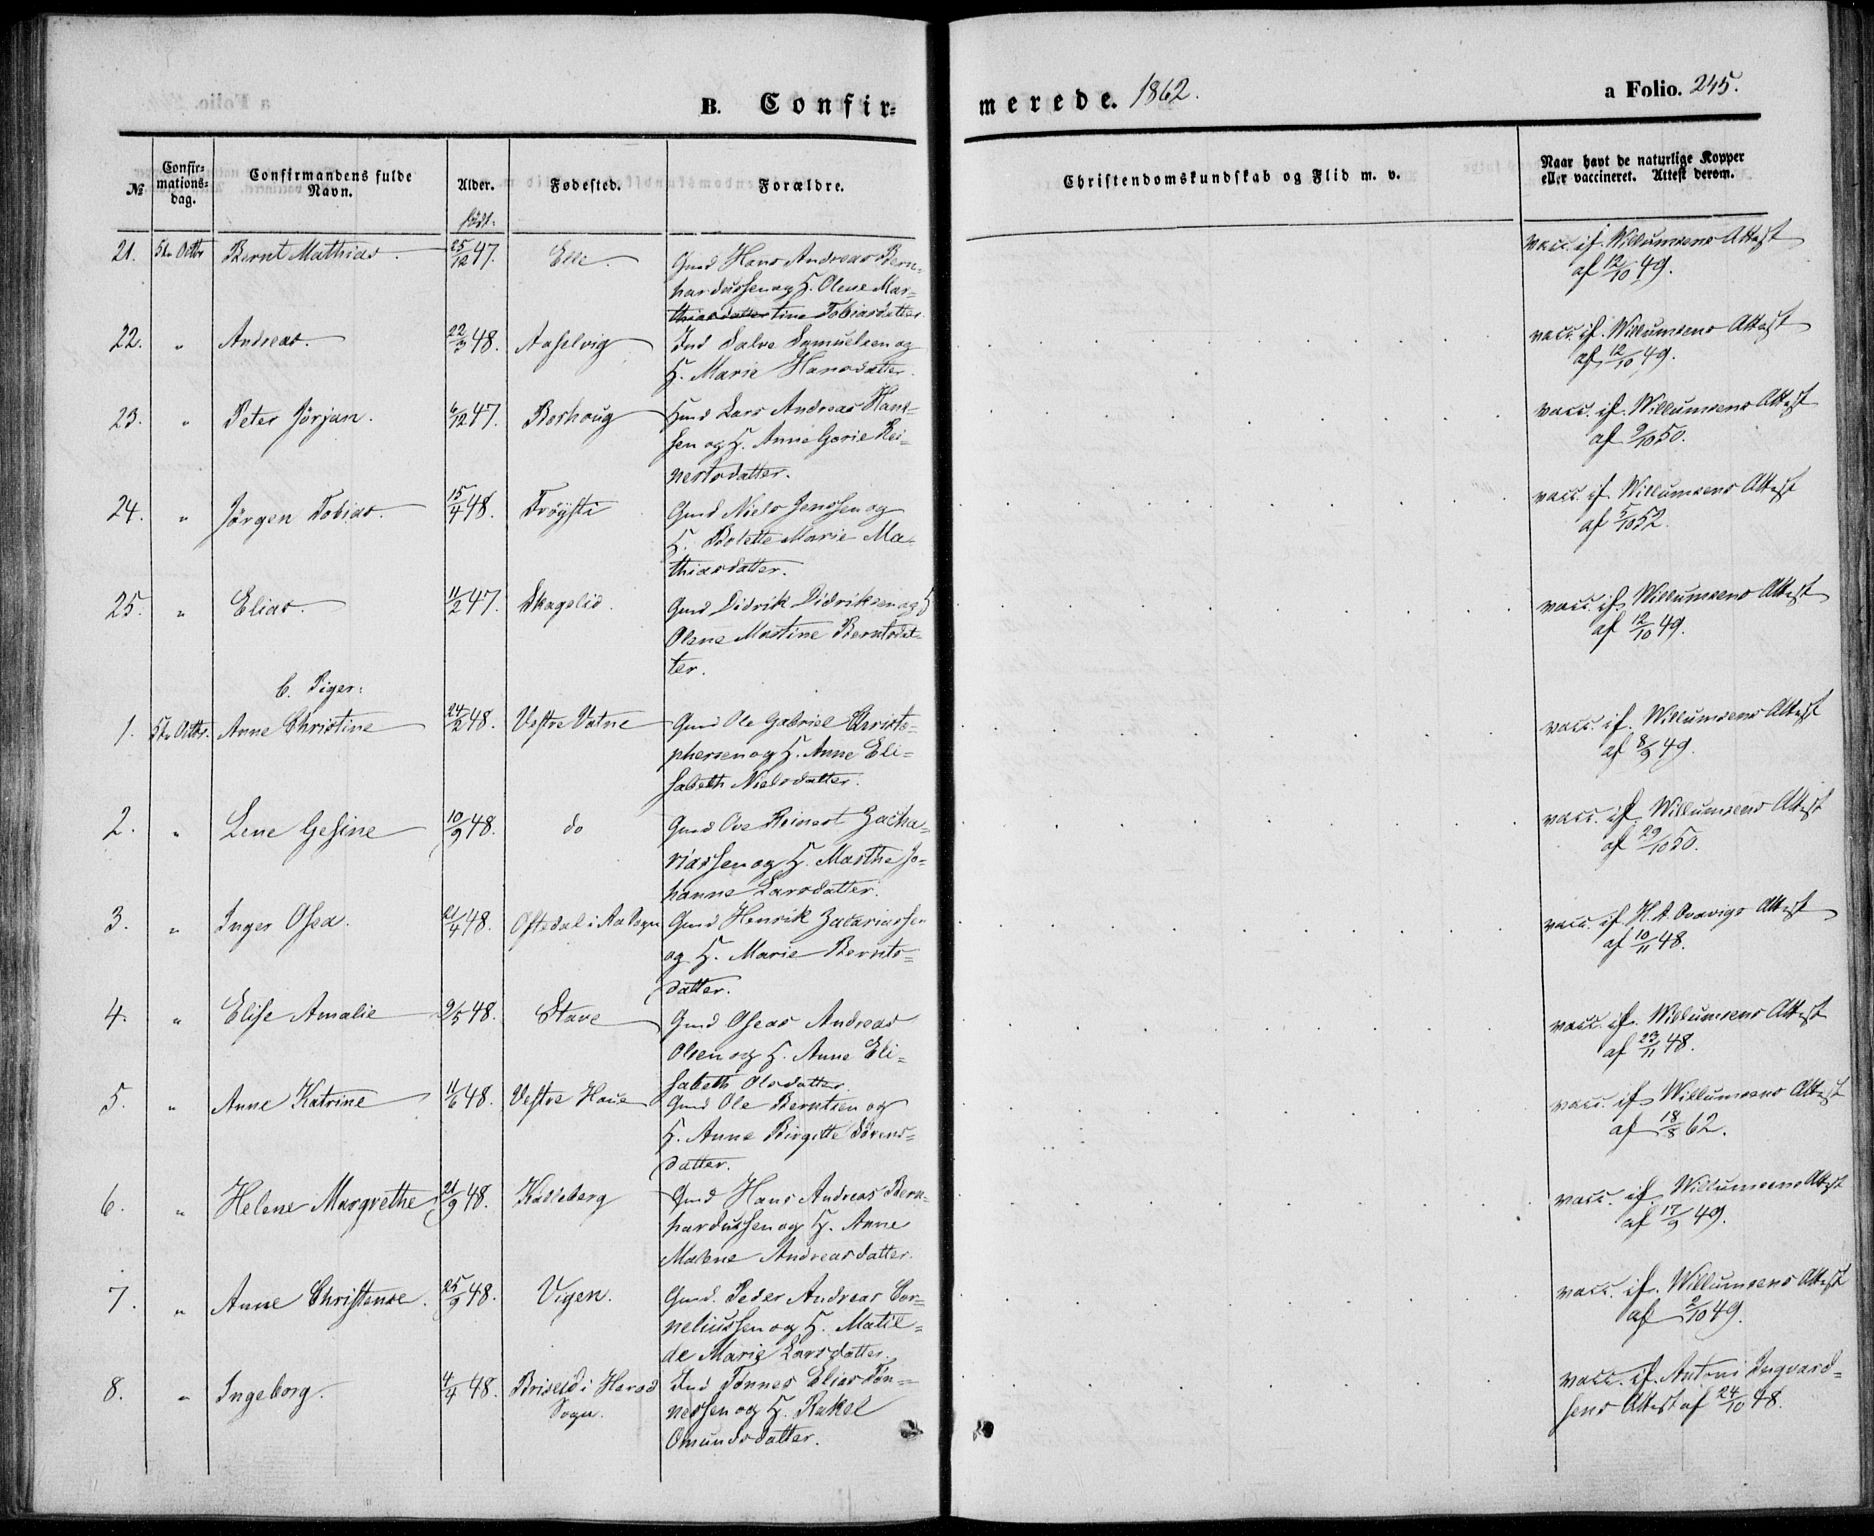 B. Confir-
merede. 1862.
a Folio. 245.
№
Confir-
mations-
dag.
Confirmandens fulde
Navn.
Alder.
født.
Fødested.
Forældre.
Christendomskundskab og Flid m. v.
Naar havt de naturlige Kopper
eller vaccineret. Attest derom.
21. 5te Octbr Bernt Mathias. 25/12 47. Elle. Gmd Hans Andreas Bern-
hardussen og H. Olene Mar-
thiasdatter tine Tobiasdatter.
vacc. if. Willumsens Attest
af 12/10 49.
22. " Andreas. 22/3 48. Aaselvig Ind Salve Samuelsen og
H. Marie Hansdatter.
vacc. if. Willumsens Attest
af 12/10 49.
23. " Peter Jørjan. 6/12 47. Borhoug Gmd Lars Andreas Han-
sen og H. Anne Gorie Rei-
nertsdatter.
vacc. if. Willumsens Attest
af 9/10 50.
24. " Jørgen Tobias. 15/4 48. Trøysti Gmd Niels Jenssen og
H. Bolette Marie Ma-
thiasdatter.
vacc. if. Willumsens Attest
af 5/10 52.
25. " Elias. 11/2 47. Skagelid. Gmd Didrik Didriksen og H
Olene Martine Berntsdat-
ter.
vacc. if Willumsens Attest
af 12/10 49.
b. Piger:
1. 5te Octbr. Anne Christine 24/2 48. Vestre Vatne Gmd Ole Gabriel Christo-
phersen og H. Anne Eli-
sabeth Nielsdatter.
vacc. if. Willumsens Attest
af 8/9 49.
2. " Lene Gesine 10/9 48. do Gmd Ove Reinert Zacha-
riassen og H. Marthe Jo-
hanne Larsdatter.
vacc. if. Willumsens Attest
af 29/10 50.
3. " Inger Osea. 21/4 48. Oftedal i Aa Sogn Gmd Henrik Zacariassen
og H. Marie Bernts-
datter.
vacc. if H. A. Aavigs Attest
af 10/11 48.
4. " Elise Amalie 9/5 48. Stave Gmd Oseas Andreas
Olsen og H. Anne Eli-
sabeth Olsdatter.
vacc. if. Willumsens Attest
af 23/11 48.
5. " Anne Katrine 11/6 48. Vestre Haue Gmd Ole Berntsen og
H. Anne Birgitte Sørens-
datter.
vacc. if Willumsens Attest
af 18/8 62.
6. " Helene Margrethe 21/9 48. Kalleberg Gmd Hans Andreas Bern-
hardussen og H. Anne
Malene Andreasdatter.
vacc. if Willumsens Attest
af 17/9 49.
7. " Anne Christense. 25/9 48. Vigen. Gmd. Peder Andreas Cor-
neliussen og H. Matil-
de Marie Larsdatter.
vacc. if. Willumsens Attest
af 2/10 49.
8. " Ingeborg. 4/4 48. Briseid i Herad Ind Tønnes Elias Tøn-
Sogn. nessen og H. Rakel
Omundsdatter.
vacc. if. Antoni Ingvard-
sens Attest af 24/10 48.